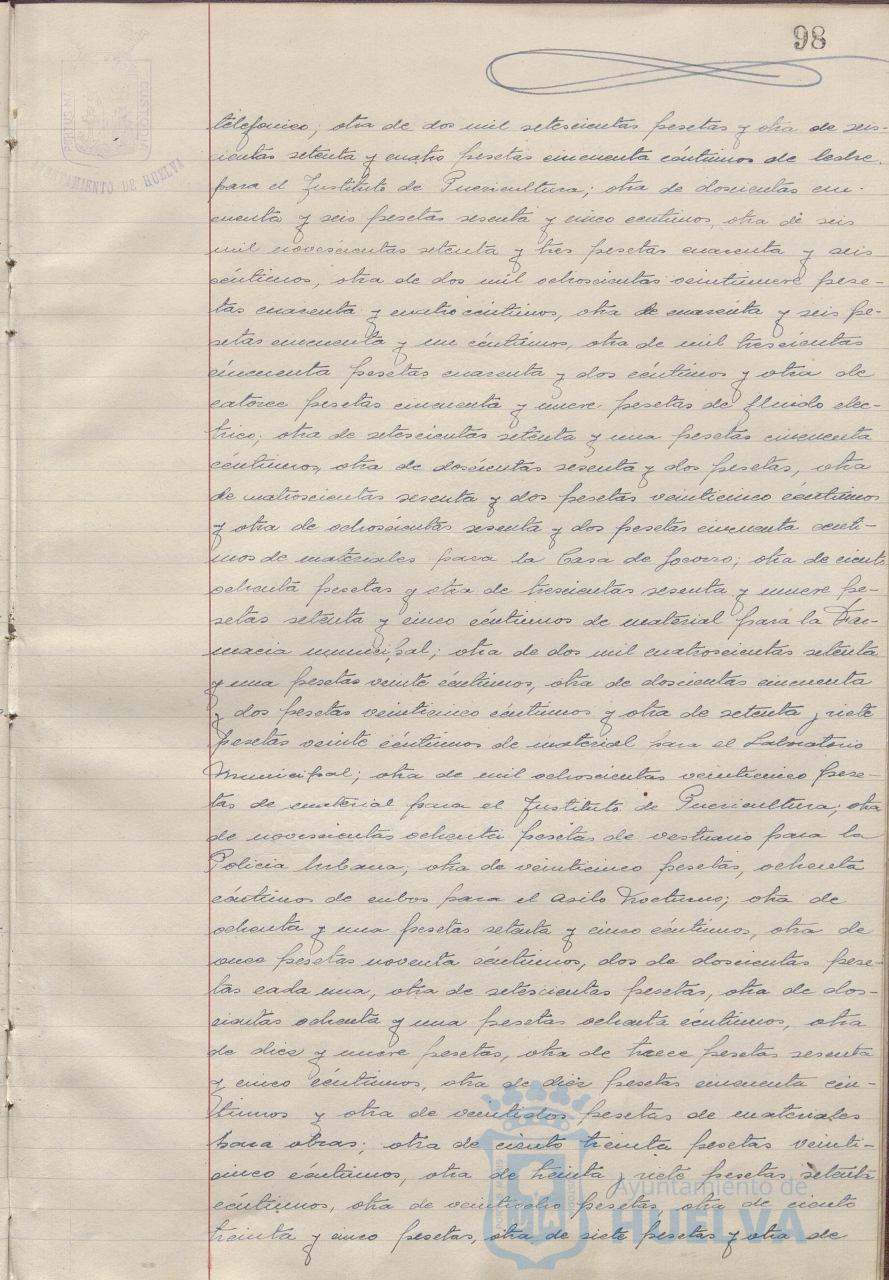 98
PORTUS MARIS
CUSTODIA
AYUNTAMIENTO DE HUELVA
telefonico; otra de dos mil setescientas pesetas y otra de seis-
cientas setenta y cuatro pesetas cincuenta céntimos de leche
para el Instituto de Puericultura; otra de doscientas cin-
cuenta y seis pesetas sesenta y cinco centimos, otra de seis
mil novescientas setenta y tres pesetas cuarenta y seis
céntimos, otra de dos mil ochoscientas veintinueve pese-
tas cuarenta y cuatro centimos, otra de cuarenta y seis pe-
setas cincuenta y un céntimos, otra de mil trescientas
cincuenta pesetas cuarenta y dos céntimos y otra de
catorce pesetas cincuenta y nueve pesetas de fluido elec-
trico; otra de setescientas setenta y una pesetas cincuenta
céntimos, otra de doscientas sesenta y dos pesetas, otra
de cuatroscientas sesenta y dos pesetas veinticinco céntimos
y otra de ochoscientas sesenta y dos pesetas cincuenta centi-
mos de materiales para la Casa de Socorro; otra de ciento
ochenta pesetas y otra de trescientas sesenta y nueve pe-
setas setenta y cinco céntimos de material para la Far-
macia municipal; otra de dos mil cuatroscientas setenta
y una pesetas veinte céntimos, otra de doscientas cincuenta
y dos pesetas veinticinco céntimos y otra de setenta y siete
pesetas veinte céntimos de material para el Laboratorio
Municipal; otra de mil ochoscientas veinticinco pese-
tas de material para el Instituto de Puericultura; otra
de novescientas ochenta pesetas de vestuario para la
Policia Urbana; otra de veinticinco pesetas, ochenta
céntimos de cubos para el Asilo Nocturno; otra de
ochenta y una pesetas setenta y cinco céntimos, otra de
once pesetas noventa céntimos, dos de doscientas pese-
tas cada una, otra de setescientas pesetas, otra de dos-
cientas ochenta y una pesetas ochenta céntimos, otra
de diez y nueve pesetas, otra de trece pesetas sesenta
y cinco céntimos, otra de diez pesetas cincuenta cén-
timos y otra de veintidos pesetas de materiales
para obras; otra de ciento treinta pesetas veinti-
cinco céntimos, otra de treinta y siete pesetas setenta
céntimos, otra de veintiocho pesetas, otra de ciento
treinta y cinco pesetas, otra de siete pesetas y otra de
Ayuntamiento de
HUELVA